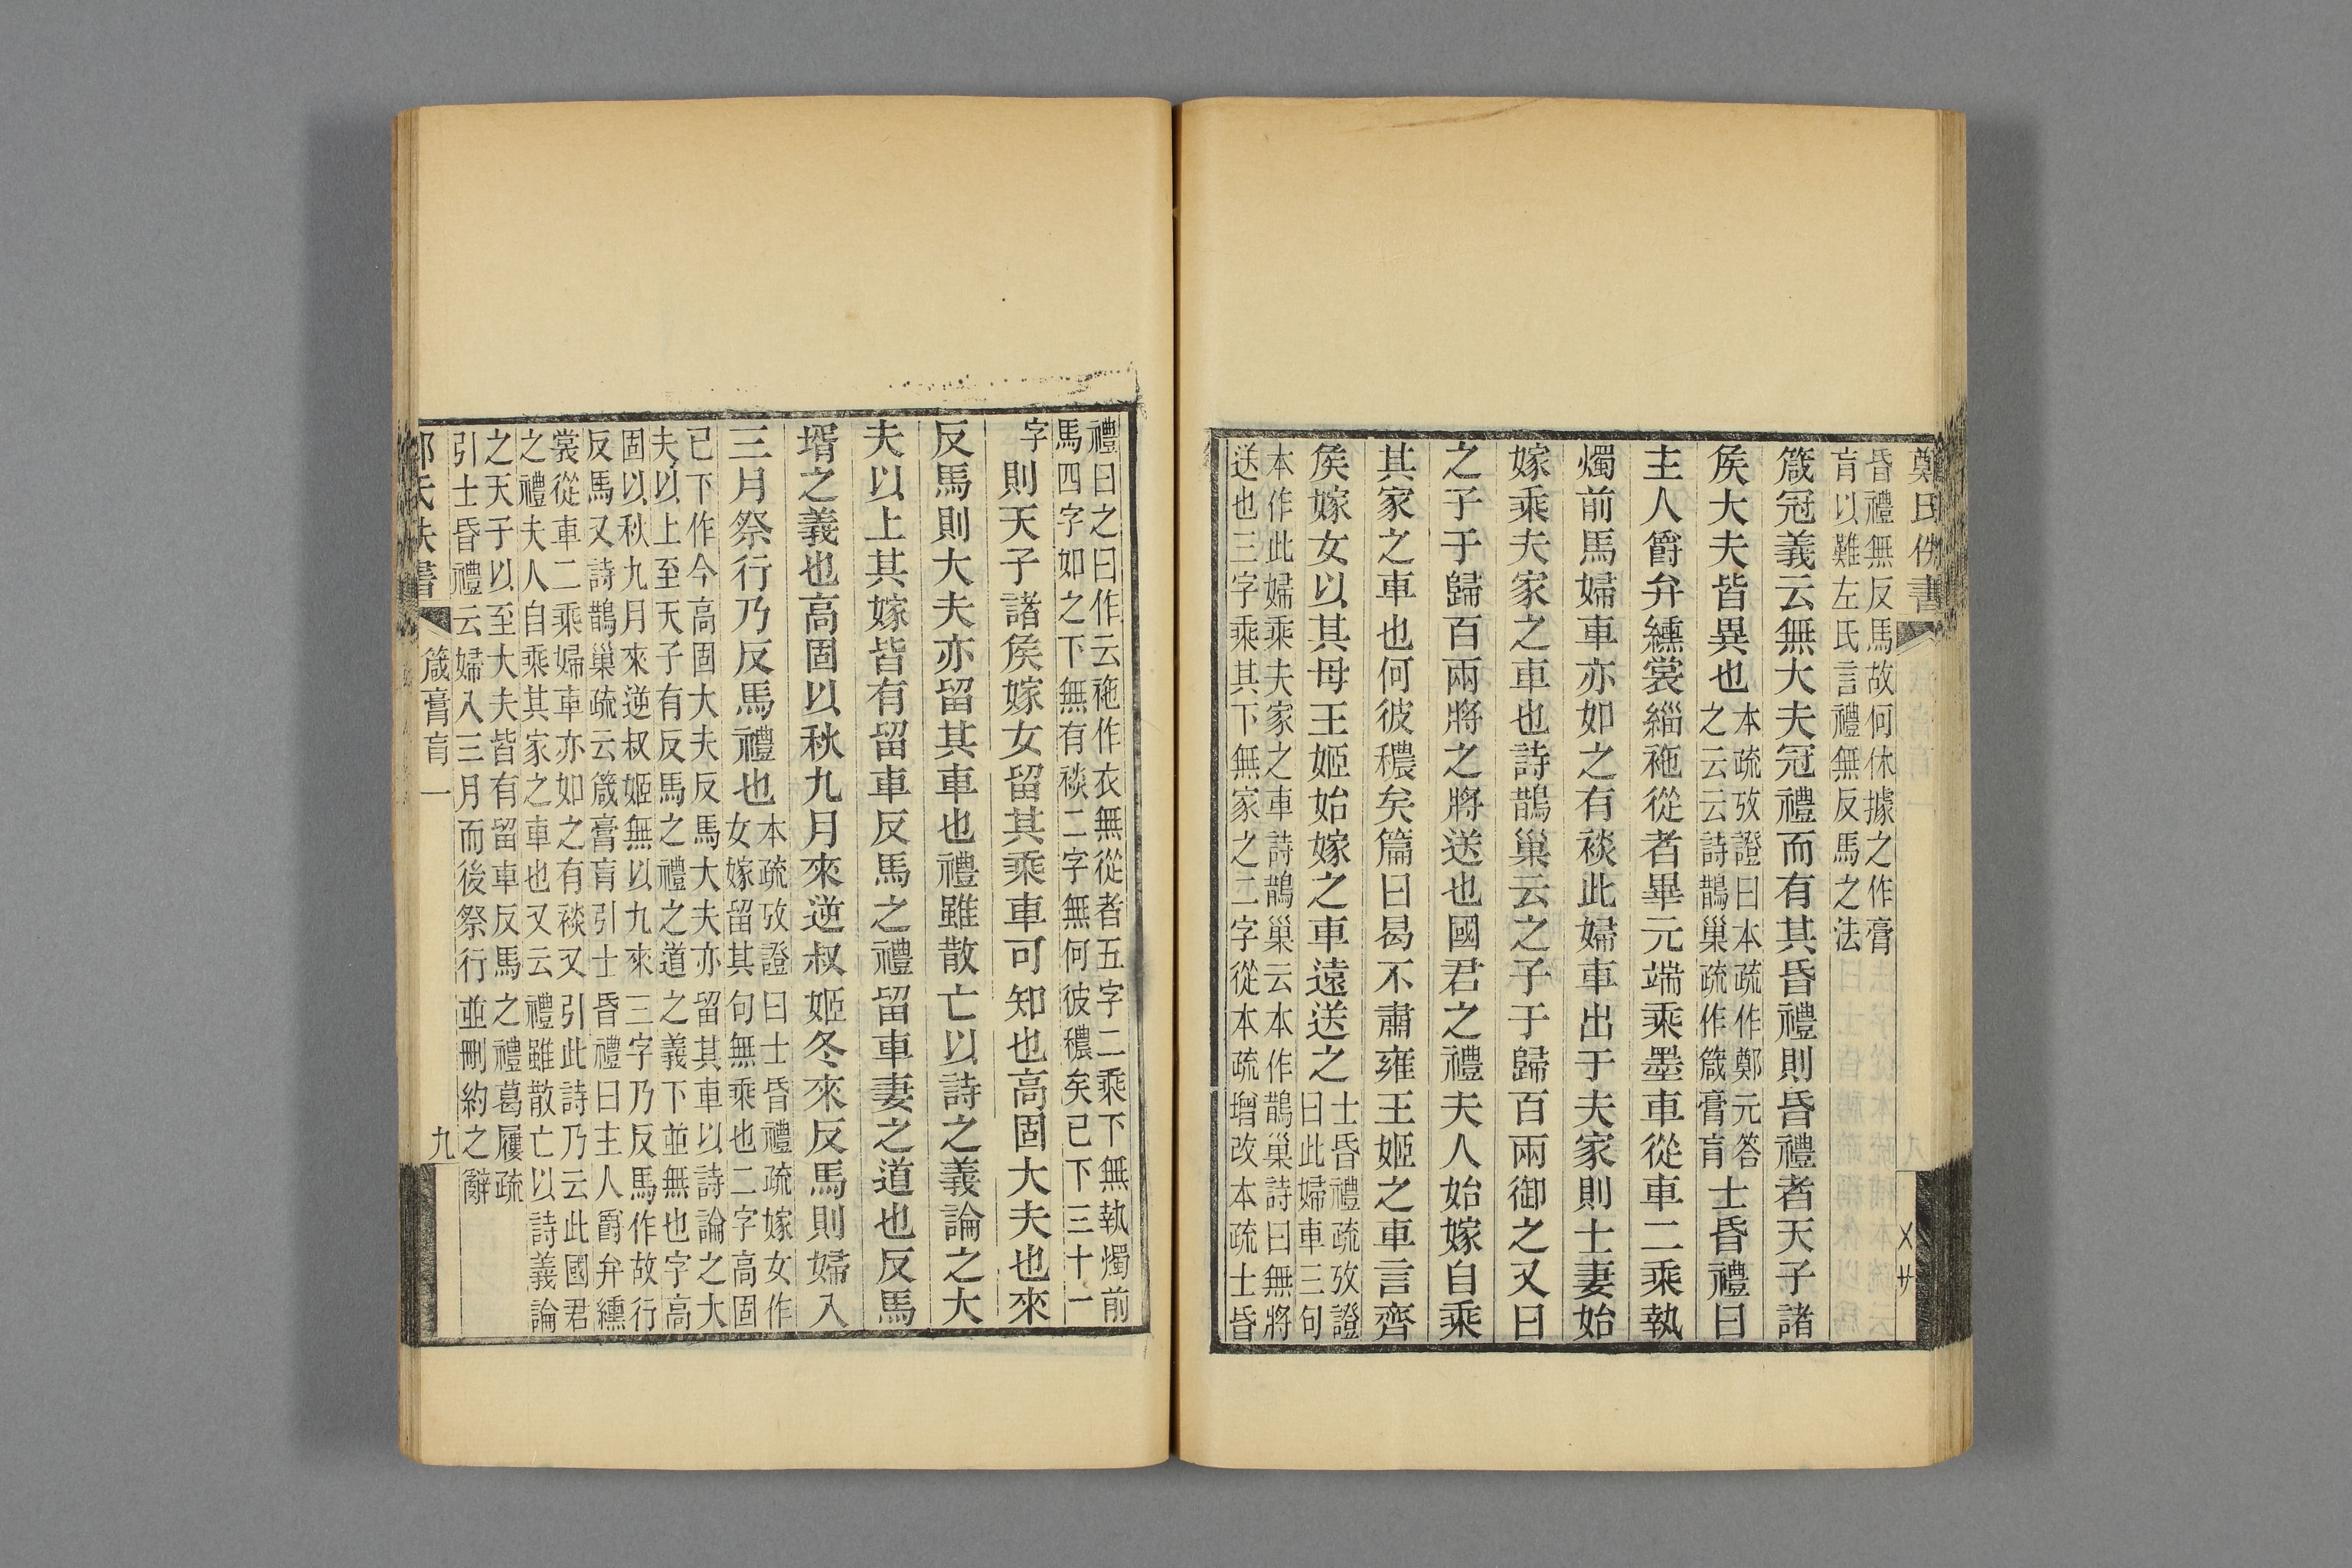 鄭氏佚書
昏禮無反馬故何休據之作膏
肓以難左氏言禮無反馬之法
箴冠義云無大夫冠禮而有其昏禮則昏禮者天子諸
矦大夫皆異也
本疏攷證曰本疏作鄭元答
之云云詩鵲巢疏作箴膏肓
士昏禮曰
主人爵弁纁裳緇袘從者畢元端乘墨車從車二乘執
燭前馬婦車亦如之有裧此婦車出于夫家則士妻始
嫁乘夫家之車也詩鵲巢云之子于歸百兩御之又曰
之子于歸百兩將之將送也國君之禮夫人始嫁自乘
其家之車也何彼穠矣篇曰曷不肅雍王姬之車言齊
矦嫁女以其母王姬始嫁之車遠送之
士昏禮疏攷證
曰此婦車三句
本作此婦乘夫家之車詩鵲巢云本作鵲巢詩曰無將
送也三字乘其下無家之二字從本疏增改本疏士昏
禮曰之曰作云袘作衣無從者五字二乘下無執燭前
馬四字如之下無有裧二字無何彼穠矣已下三十一
字
則天子諸矦嫁女留其乘車可知也高固大夫也來
反馬則大夫亦留其車也禮雖散亡以詩之義論之大
夫以上其嫁皆有留車反馬之禮留車妻之道也反馬
壻之義也高固以秋九月來逆叔姬冬來反馬則婦入
三月祭行乃反馬禮也
本疏攷證曰士昏禮疏嫁女作
女嫁留其句無乘也二字高固
已下作今高固大夫反馬大夫亦留其車以詩論之大
夫以上至天子有反馬之禮之道之義下並無也字高
固以秋九月來逆叔姬無以九來三字乃反馬作故行
反馬又詩鵲巢疏云箴膏肓引士昏禮曰主人爵弁纁
裳從車二乘婦車亦如之有裧又引此詩乃云此國君
之禮夫人自乘其家之車也又云禮雖散亡以詩義論
之天子以至大夫皆有留車反馬之禮葛屨疏
引士昏禮云婦入三月而後祭行並刪約之辭
箴膏肓一
九